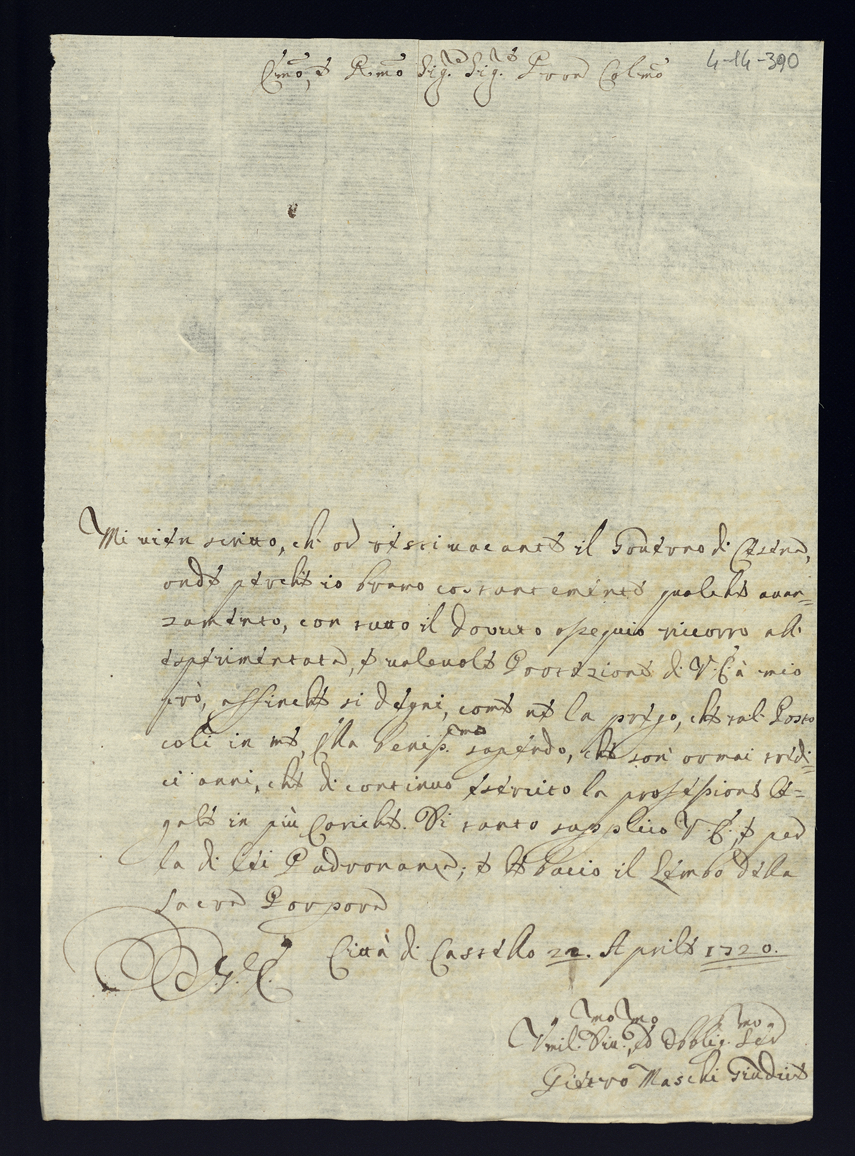 4-14-390
Emo, e Rmo Sig.re Sig.re Pron Colmo
Mi vien scritto, che od resti vacante il Governo di Cesena,
onde perche io bramo costantemente qualche avan=
zamento, con tutto il dovuto ossequio ricorro all:
esperimentata, e valevole Protezione di V. E. à mio
prò, affinche si degni, come ne la prego, che tal Posto
coli in me, Ella Benig.ma sapendo, che son' ormai tredi=
ci anni, che di continuo esercito la professione le=
gale in più Cariche. Di tanto supplico V. E., e per
la di lei Padronanza; e le bacio il Lembo della
Sacra Porpora
D. V. E. Città di Castello 22. Aprile 1720.
Umil.mo Div.mo, ed Obblig.mo Ser
Pietro Maschi Giudice